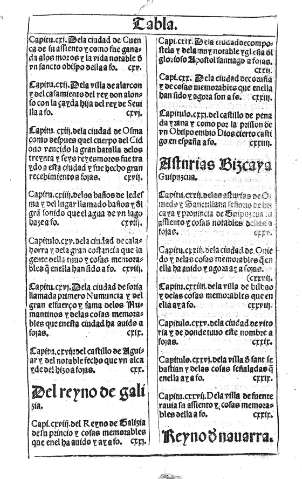 Tabla.
Capitu.cxj. De la ciudad de Cuen
ca de su assiento y como fue gana
da alos moros y la vida notable d
vn sancto obispo della a fo.
Capitu.cxij. De la villa de alarcon
y del casamiento del rey don alon
so con la çayda hija del rey de Seui
lla a fo. cxvj.
Capitu.cxiij. De la ciudad de Osma
como despues que el cuerpo del Cid
vencido la gran batalla delos
treynta y seys reyes moros fue tra
ydo a esta ciudad y fue hecho gran
recebimiento a fojas. cxvij.
Capitu.cxiiij. delos baños de ledes
ma y del lugar llamado baños y dl
grã sonido que el agua de vn lago
haze a fo. cxvij.
Capitulo.cxv. dela ciudad de cala
horra y dela gran costancia que la
gente della tuuo y cosas memora
bles q̃ en ella han sido a fo. cxviij.
Capitu.cxvj. Dela ciudad de soria
llamada primero Numancia y del
gran esfuerço y fama delos Nu
mantinos y delas cosas memora
bles que en esta ciudad ha auido a
fojas. cxix.
Capitu.cxvij. del castillo de Agui
lar y del notable fecho que vn alca
yde del hizo a fojas. cxx.
Del reyno de gali
zia.
Capi.cxviij. del Reyno de Galizia
de su principio y cosas memorables
que en el ha auido y ay a fo. cxx.
Capi.cxix. Dela ciudad de compos
tela y dela muy notable ygl̃esia dl
glorioso Apostol santiago a fojas.
Capi.cxx. Dela ciudad de coruña
y de cosas memorables que en ella
han sido y agora son a fo. cxxij.
Capitulo.cxxj. del castillo de peña
da rayna y como por la prision de
vn Obispo embio Dios cierto casti
go en españa a fo. cxxij.
Asturias Bizcaya
Guipuzcua.
Capitulo.cxxij. delas asturias de O
uiedo y Santillana señorio de biz
caya y prouincia de Guipuzcua su
assiento y cosas notables
a fo.
Capitu.cxxiij. Dela ciudad de Ouie
do y delas cosas memorables q̃ en
ella ha auido y agora ay a fojas.
Capitu.cxxiiij. dela villa de bilbao
y delas cosas memorables que en
ella ay a fo.
Capitulo.cxxv. dela ciudad de vito
ria y de donde tuuo este nombre a
fojas.
Capitulo.cxxvj. dela villa d̃ sant se
bastian y delas cosas señaladas q̃
en ella ay a fo. cxxix.
Capitu.cxxvij. Dela villa de fuente
rauia su assiento y cosas memora
bles della a fo. cxxix.
Reyno d̃ nauarra.